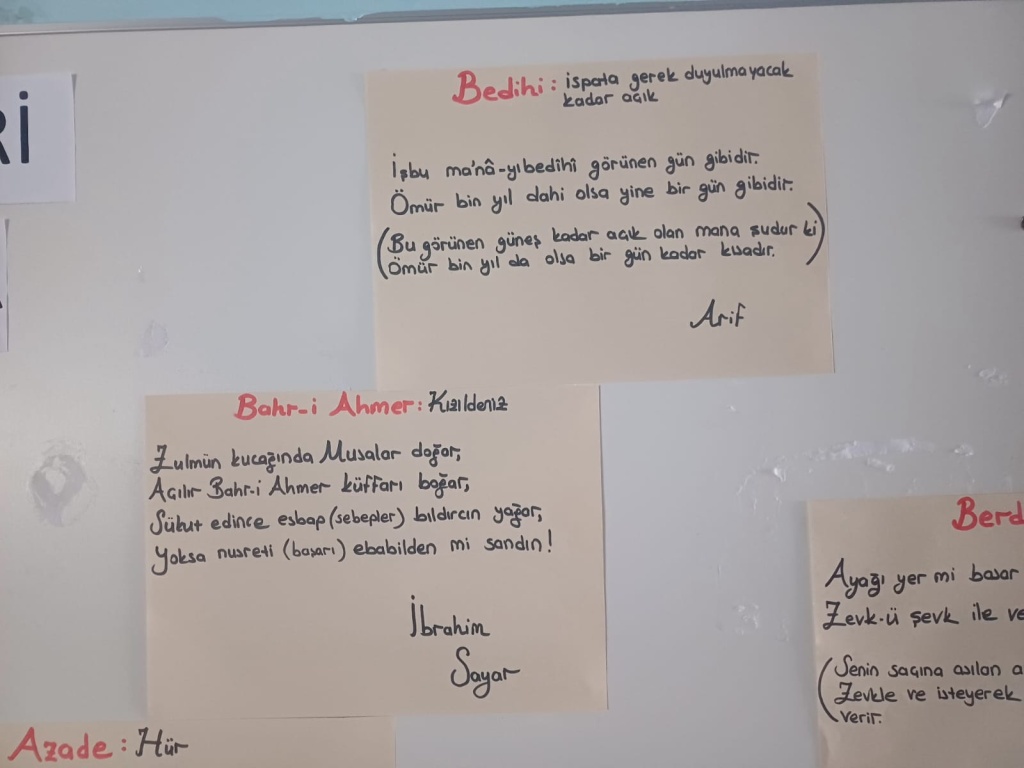 Rİ
Bedihi: ispata gerek duyulmayacak
kadar açık
İşbu ma'nâ-yıbedihî görünen gün gibidir.
Ömür bin yıl dahi olsa yine bir gün gibidir.
(Bu görünen güneş kadar açık olan mana şudur ki
Ömür bin yıl da olsa bir gün kadar kısadır.)
Arif
Bahr-i Ahmer: Kızıldeniz
Zulmün kucağında Musalar doğar,
Açılır Bahr-i Ahmer küffarı boğar,
Sükut edince esbap (sebepler) bıldırcın yağar,
Yoksa nusreti (başarı) ebabilden mi sandın!
İbrahim
Sayar
Berd
Ayağı yer mi basar
Zevk-ü şevk ile ve
(Senin saçına asılan a
Zevkle ve isteyerek
verir.
Azade: Hür